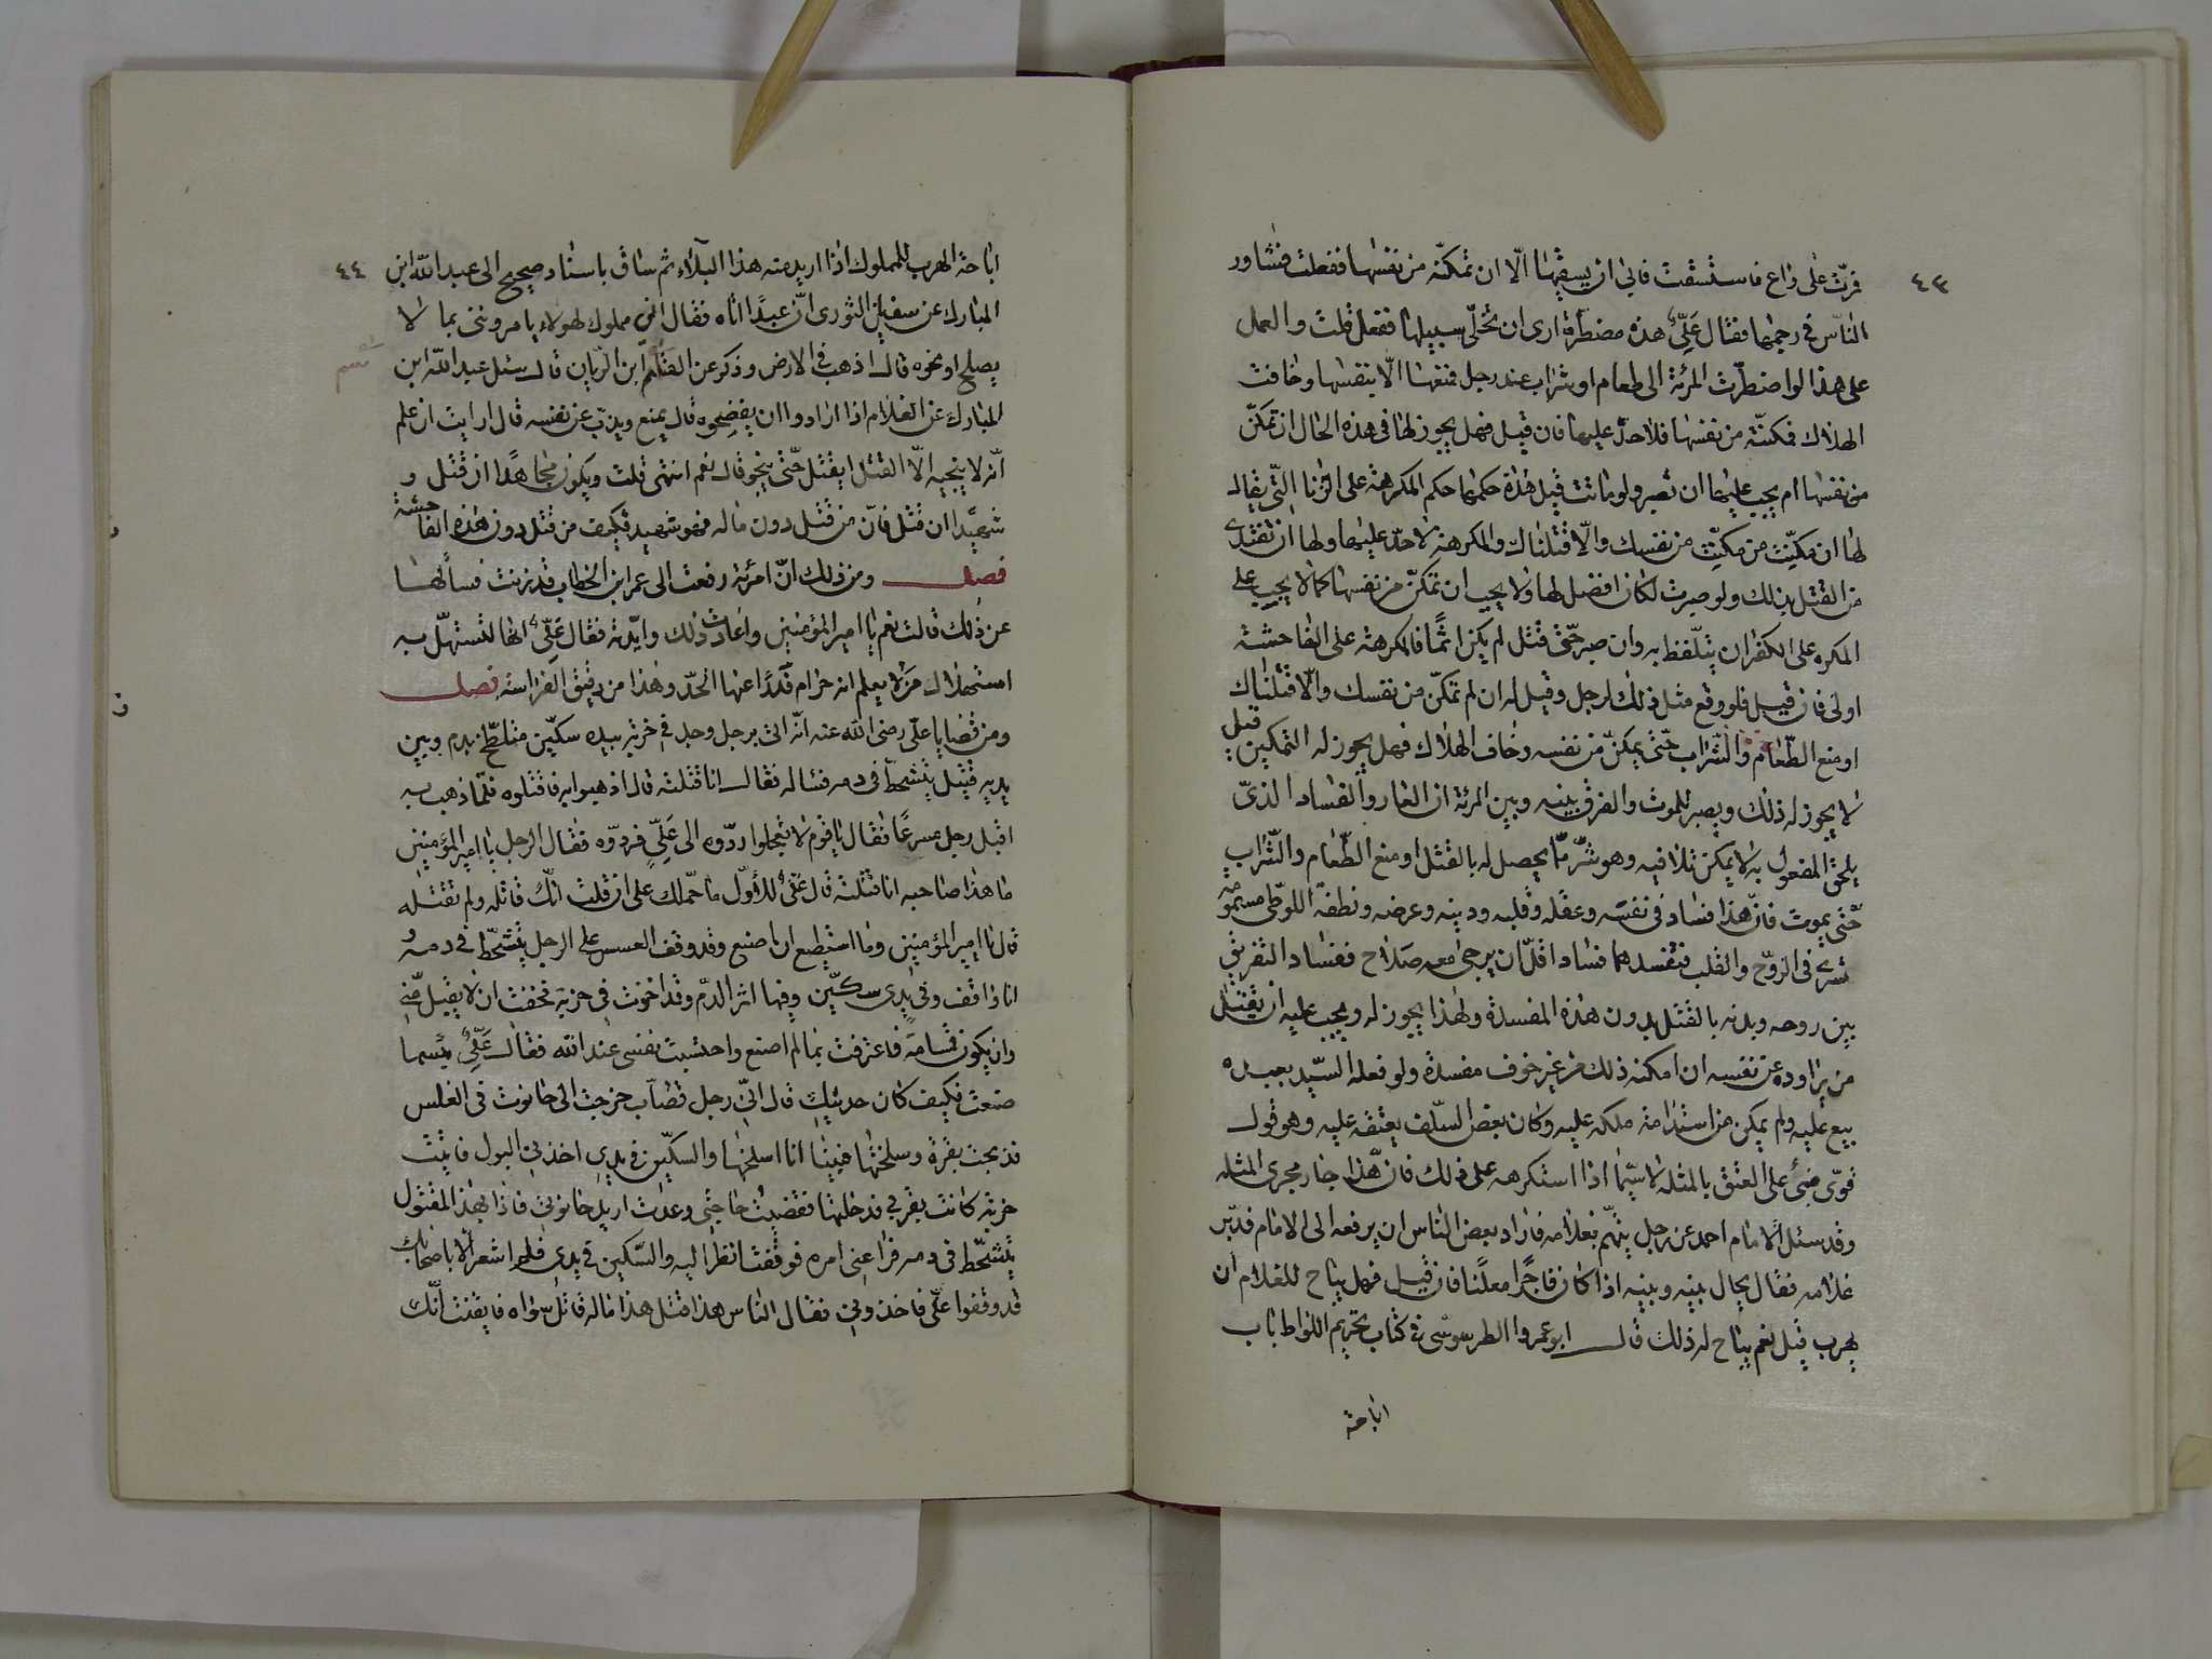 ٤٣
فمرّت على راع فاستسقت فابى ان يسقيها الّا ان تمكّنه من نفسها ففعلت فشاور
النّاس في رجمها فقال عليّ هذه مضطرّة ارى ان تخلّى سبيلها ففعل قلت والعمل
على هذا لو اضطرّت المرئة الى طعام او شراب عند رجل فمنعها الّا بنفسها وخافت
الهلاك فمكنّته من نفسها فلا حدّ عليها فان قيل فهل يجوز لها في هذه الحال ان تمكّن
من نفسها ام يجب عليها ان تصبر ولو ماتت قيل هذه حكمها حكم المكرهة على الزنا التي يقال
لها ان مكنّت من نفسك والّا قتلناك والمكرهة لا حدّ عليها ولها ان تفتدى
من القتل بذلك ولو صبرت لكان افضل لها ولا يجب ان تمكّن من نفسها كما لا يجب على
المكره على الكفر ان يتلّفظ به وان صبر حتّى قتل لم يكن اثمًا فالمكرهة على الفاحشة
اولى فان قيل فلو وقع مثل ذلك لرجل وقيل له ان لم تمكّن من نفسك والّا قتلناك
او منع الطّعام والشّراب حتّى يمكنّ من نفسه وخاف الهلاك فهل يجوز له التمكين قيل
لا يجوز له ذلك ويصبر للموت والفرق بينه وبين المرئة ان العار والفساد الذيّ
يلحق المفعول به لا يمكن تلافيه وهو شرّ ممّا يحصل له بالقتل او منع الطّعام والشّراب
حتّى يموت فانّ هذا فساد في نفسه وعقله وقلبه ودينه وعرضه ونطفة اللوطى مسمومة
تسرى في الرّوح والقلب فتفسدهما فسادا قلّ ان يرجى معه صلاح ففساد التفريق
بين روحه وبدنه بالقتل بدون هذه المفسدة ولهذا يجوز له ويجب عليه ان يقتل
من يراوده عن نفسه ان امكنه ذلك من غير خوف مفسدة ولو فعله السّيد بعبده
بيع عليه ولم يمكن من استدامة ملكه عليه وكان بعض السّلف يعتقه عليه وهو قول
قوّى مبنى على العتق بالمثله لا سيّما اذا استكرهه على ذلك فانّ هذا جار مجرى المثله
وقد سئل الامام احمد عن رجل يتّهم بغلامه فاراد بعض الناس ان يرفعه الى الامام فدبّر
غلامه فقال يحال بينه وبينه اذا كان فاجرًا معلنًا فان قيل فهل يباح للغلام ان
يهرب قيل نعم يباح له ذلك قال ابو عمروا الطرسوسى في كتاب تحريم اللواط باب
اباحة
٤٤
اباحة الهرب للمملوك اذا اريد منه هذا البلاء ثم ساق باسناد صحيح الى عبد اللّه ابن
المبارك عن سفيان الثورى انّ عبدًا اتاه فقال انّي مملوك لهولاء يامروننى بما لا
يصلح او نحوه قال اذهب في الارض وذكر عن القاسم ابن الرّيان قال سئل عبد اللّه ابن
المبارك عن الغلام اذا ارادوا ان يفضحوه قال يمنع ويذبّ عن نفسه قال ارايت ان علم
انّه لا ينجيه الّا القتل ايقتل حتّى ينجو قال نعم انتهى قلت ويكون مجاهدًا ان قتل و
شهيدًا ان قتل فانّ من قتل دون ماله فهو شهيد فكيف من قتل دون هذه الفاحشة
فصل ومن ذلك انّ امرئة رفعت الى عمر ابن الخطاب قد زنت فسألها
عن ذلك قالت نعم يا امير المؤمنين واعادت ذلك وايّدته فقال عليّ انّها لتستهلّ به
استهلال من لا يعلم انه حرام فدرأ عنها الحدّ وهذا من دقيق الفراسة فصل
ومن قضايا علّى رضى اللّه عنه انّه اتى برجل وجد في خربة بيده سكّين متلطّخ بدم وبين
يديه قتيل يتشحّط في دمه فساله فقال انا قتلته قال اذهبوا به فاقتلوه فلمّا ذهب به
اقبل رجل مسرعًا فقال يا قوم لا تعجلوا ردّوه الى عليّ فردّوه فقال الرجل يا امير المؤمنين
ما هذا صاحبه انا قتلته قال علّى للأوّل ما حمّلك على ان قلت انّك قاتله ولم تقتله
قال يا امير المؤمنين وما استطيع ان اصنع وقد وقف العسس على الرجل يتشحّط في دمه و
انا واقف وفى يدى سكّين وفيها اثر الدّم وقد اخذت في خربة فخفت ان لا يقبل منّى
وان يكون قسامة فاعترفت بما لم اصنع واحتسبت نفسى عند اللّه فقال عليّ بئسما
صنعت فكيف كان حديثك قال انّي رجل قصّاب خرجت الى حانوت في الغلس
فذبحت بقرة وسلختها فبينا انا اسلخها والسكّين في يدى اخذنى البول فاتيت
خربة كانت بقربي فدخلتها فقضيت حاجتى وعدت اريد حانوتى فاذا بهذا المقتول
يتشحّط في دمه فراعنى امره فوقفت انظر اليه والسّكين في يدى فلم اشعر الّا باصحابك
قد وقفوا علّى فاخذونى فقال النّاس هذا قتل هذا ماله قاتل سواه فايقنت انّك